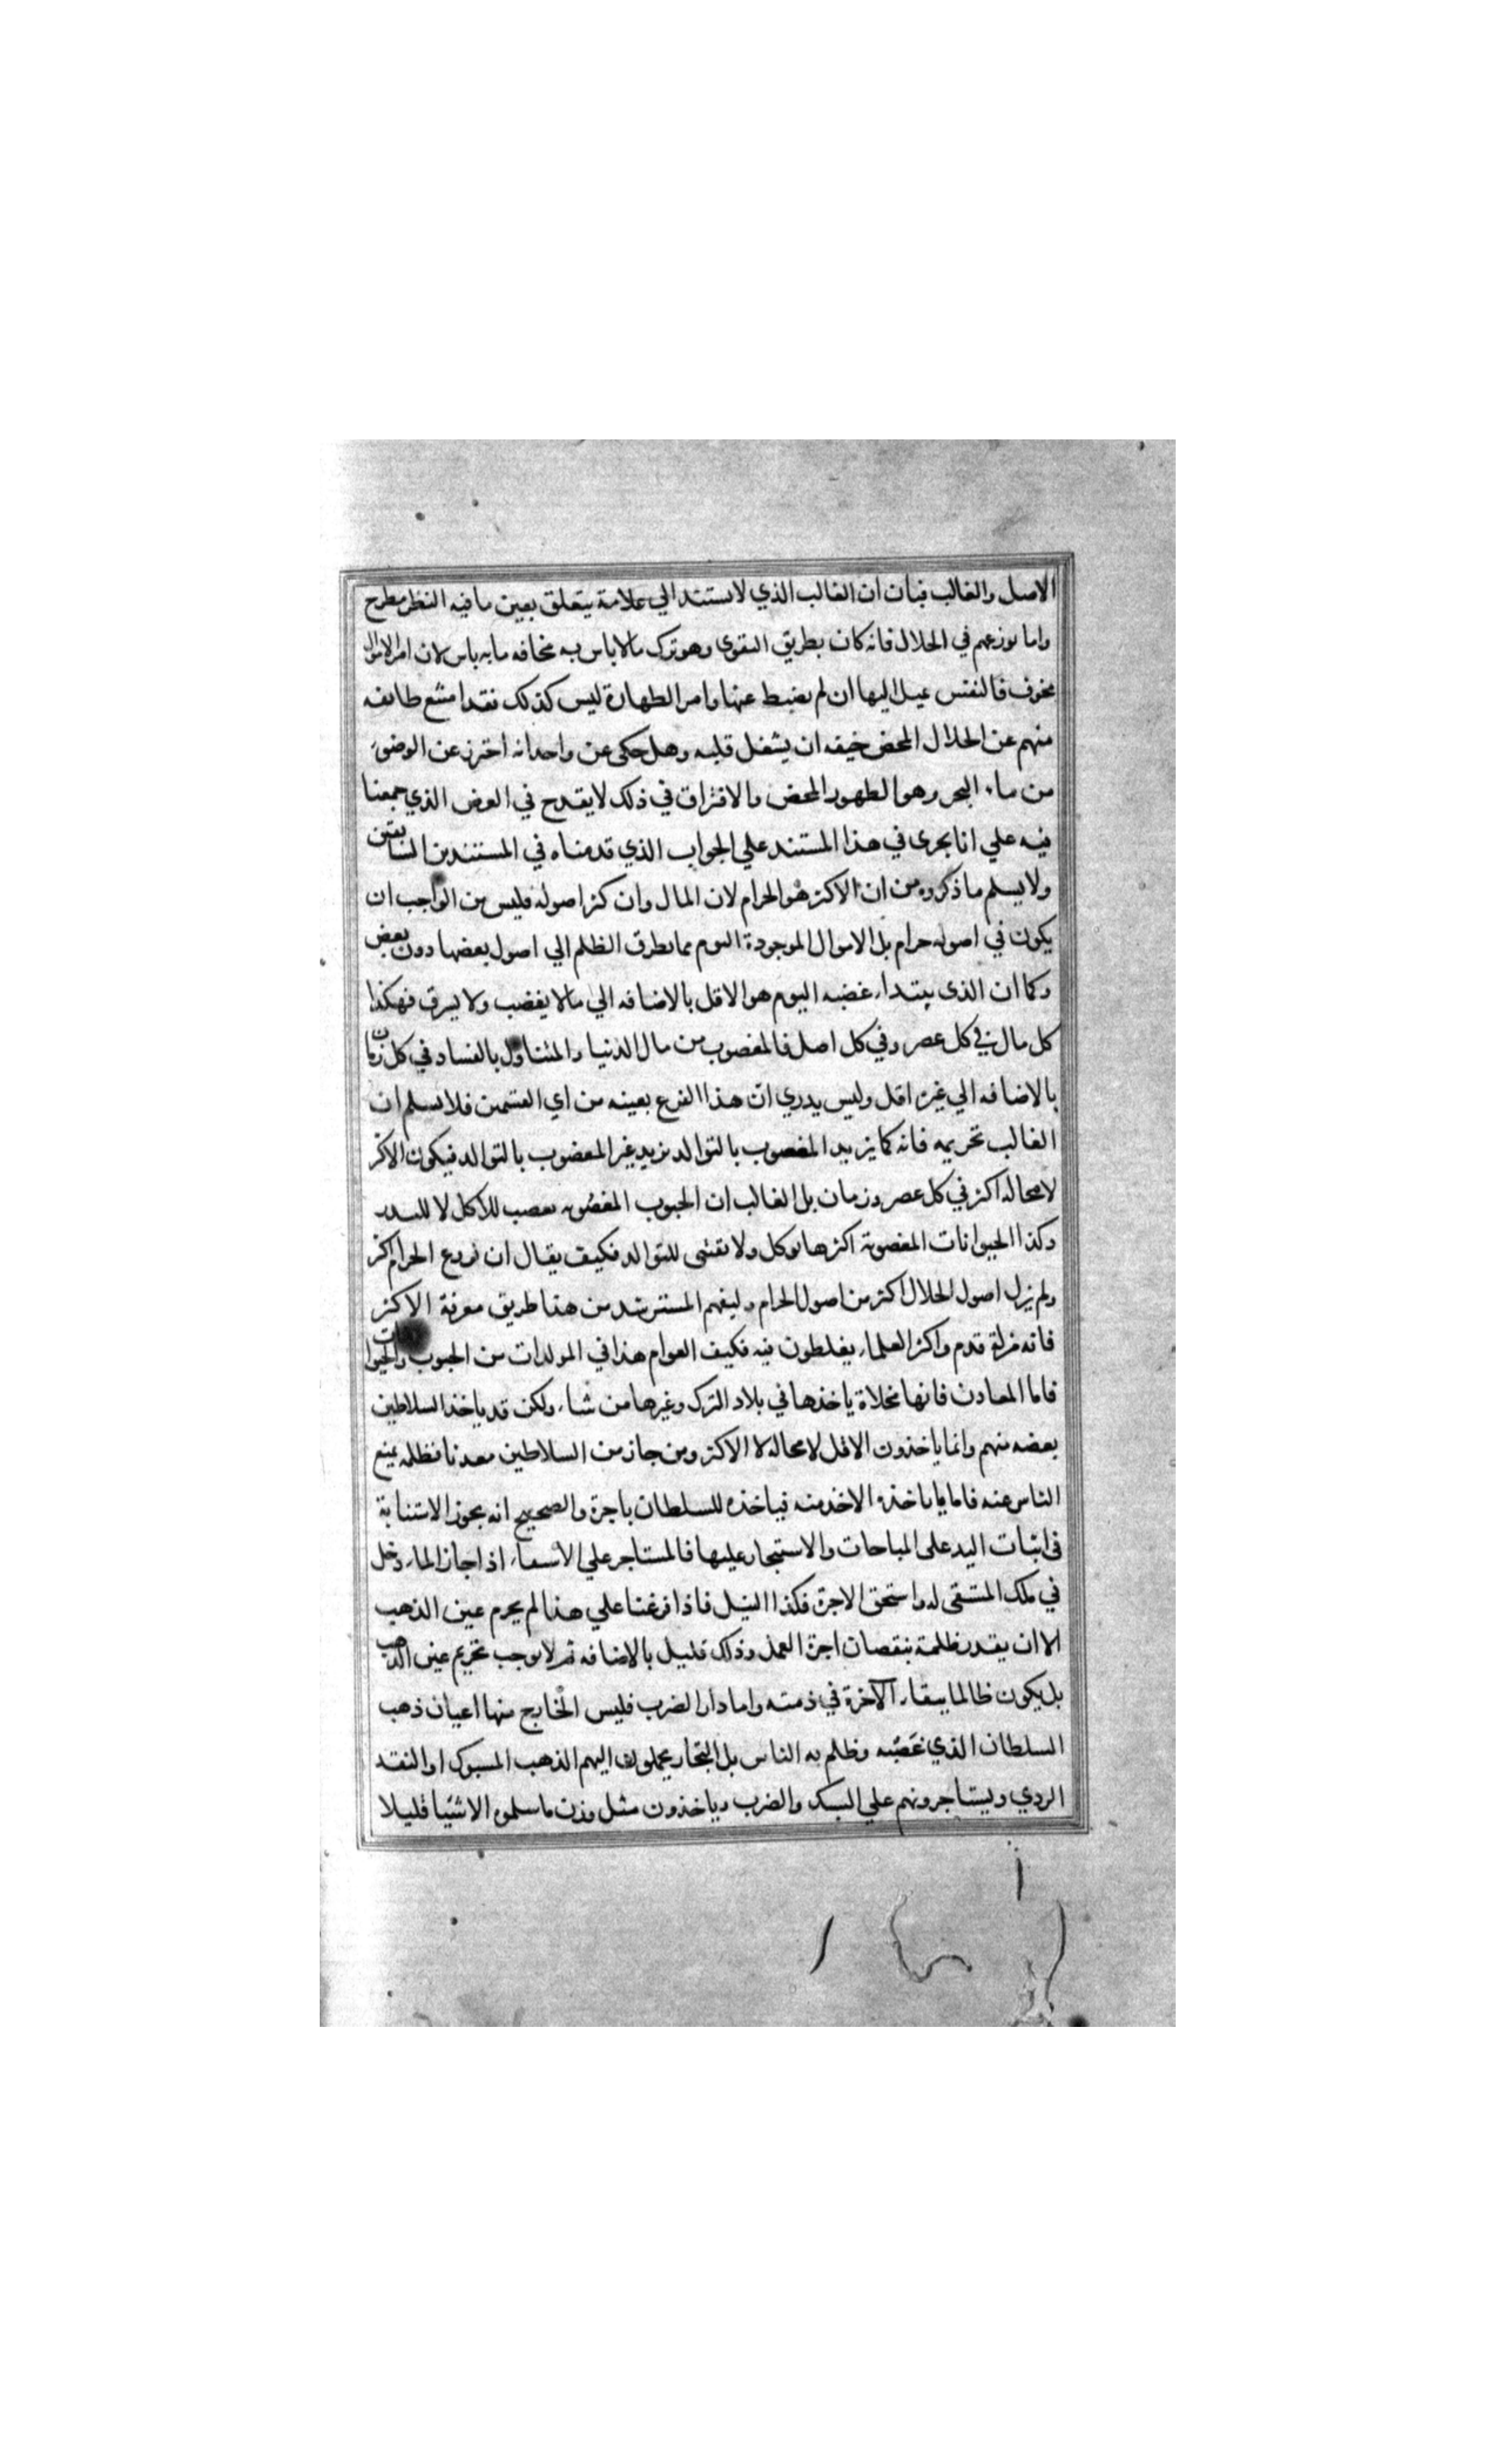 الاصل والغالب فبان ان الغالب الذي لا يستند الي علامة يتعلق بعين ما فيه النظر مطرح
واما تورعهم في الحلال فانه كان بطريق التقوى وهو ترك مالا باس به مخافه ما به باس لان امر الاموال
مخوف فالنفس تميل اليها ان لم يضبط عنها وامر الطهارة ليس كذلك فقد امتنع طايفه
منهم عن الحلال المحض خيفه ان يشغل قلبه وهل حكى عن واحد انه احترز عن الوضوء
من ماء البحر وهو الطهور المحض والافتراق في ذلك لا يقدح في الغرض الذي جمعنا
فيه علي انا نجرى في هذا المستند علي الجواب الذي قدمناه في المستندين السابقين
ولا يسلم ما ذكروه من ان الاكثر هو الحرام لان المال وان كثر اصوله فليس من الواجب ان
يكون في اصوله حرام بل الاموال الموجودة اليوم مما يطرق الظلم الي اصول بعضها دون بعض
وكما ان الذى يبتداء غضبه اليوم هو الاقل بالاضافه الي مالا يغضب ولا يسرق فهكذا
كل مال في كل عصر وفي كل اصل فالمغصوب من مال الدنيا والمتناول بالفساد في كل زمان
بالاضافه الي غيره اقل وليس يدري ان هذا الفرع بعينه من اي القسمين فلا يسلم ان
الغالب تحريمه فانه كما يزيد المغصوب بالتوالد يزيد غير المغضوب بالتوالد فيكون الاكثر
لا محالة اكثر في كل عصر وزمان بل الغالب ان الحبوب المغصوبه تغصب للاكل لا للبدر
وكذا الحيوانات المغصوبة اكثرها يوكل ولا يقتنى للتوالد فكيف يقال ان فروع الحرام اكثر
ولم يزل اصول الحلال اكثر من اصول الحرام وليفهم المسترشد من هذا طريق معرفة الاكثر
فانه مزلة قدم واكثر العلماء يغلطون فيه فكيف العوام هذا في المولدات من الحبوب والحيوانات
فاما المعادن فانها مخلاة ياخذها في بلاد الترك وغيرها من شاء ولكن قد ياخذ السلاطين
بعضه منهم وانما ياخذون الاقل لا محالة لا الاكثر ومن حاز من السلاطين معدنا فظلمه بمنع
الناس عنه فاما ما ياخذه الاخذ منه فياخذه للسلطان باجرة والصحيح انه يجوز الاستنابة
فى اثبات اليد على المباحات والاستيجار عليها فالمستاجر علي الاسقاء اذا جاز الماء دخل
في ملك المستقى له واستحق الاجرة فكذا النيل فاذا فرغنا علي هذا لم يحرم عين الذهب
الا ان يقدر ظلمة بنقصان اجرة العمل وذلك قليل بالاضافه ثم لا يوجب تحريم عين الذهب
بل يكون ظالما ببقاء الآخرة في ذمته واما دار الضرب فليس الخارج منها اعيان ذهب
السلطان الذي غصبه وظلم به الناس بل التجار يحملون اليهم الذهب المسبوك او النقد
الردي ويستاجرونهم علي السبك والضرب وياخذون مثل وزن ما سلموه الا شيا قليلا